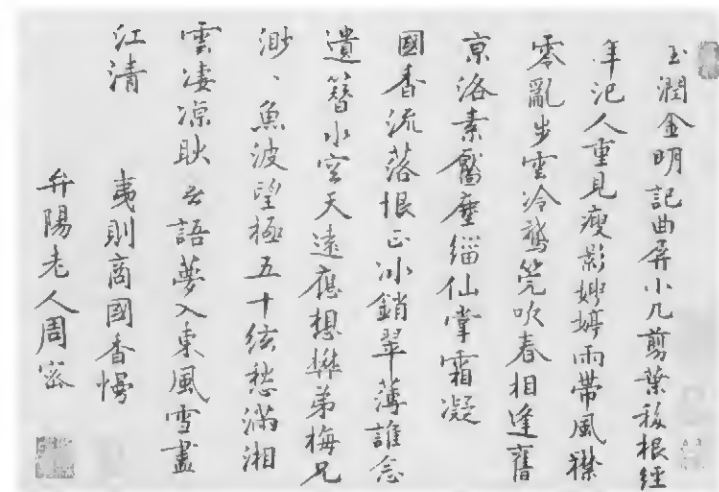 玉潤金明記曲屏小几剪葉移根經
年汜人重見瘦影娉婷雨帶風襟
零亂步雲冷鵞筦吹春相逢舊
京洛素靨塵緇仙掌霜凝
國香流落恨正冰銷翠薄誰念
遺簪水空天遠應想礬弟梅兄
渺、魚波望極五十絃愁滿湘
雲凄凉耿无語夢入東風雪盡
江清
夷則商國香慢
弁陽老人周密